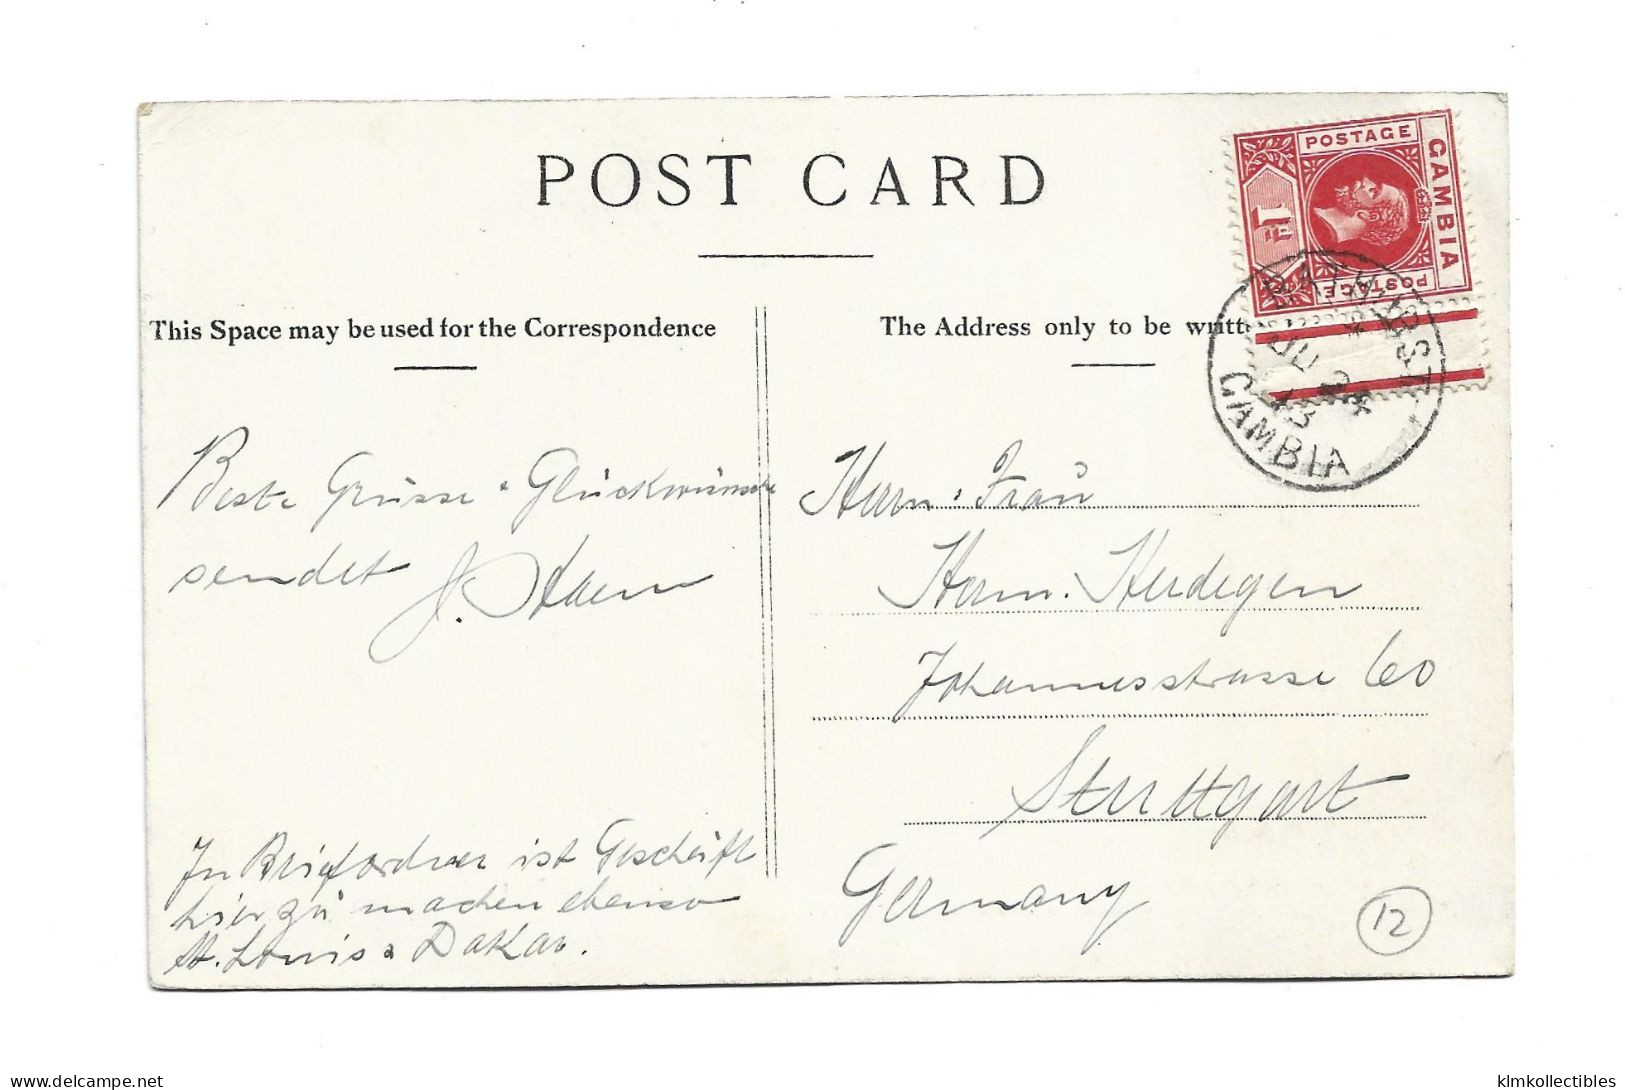 POST CARD
POSTAGE
GAMBIA
1d
POSTAGE
BATHURST
JU 24
13
GAMBIA
This Space may be used for the Correspondence
The Address only to be writt
Beste Grüsse & Glückwünsche
sendet J.
In Briefordner ist Geschäft
hier zu machen ebenso
St. Louis & Dakar.
Herrn & Frau
Herm. Herdegen
Johannesstrasse 60
Stuttgart
Germany
12
klmkollectibles
delcampe.net